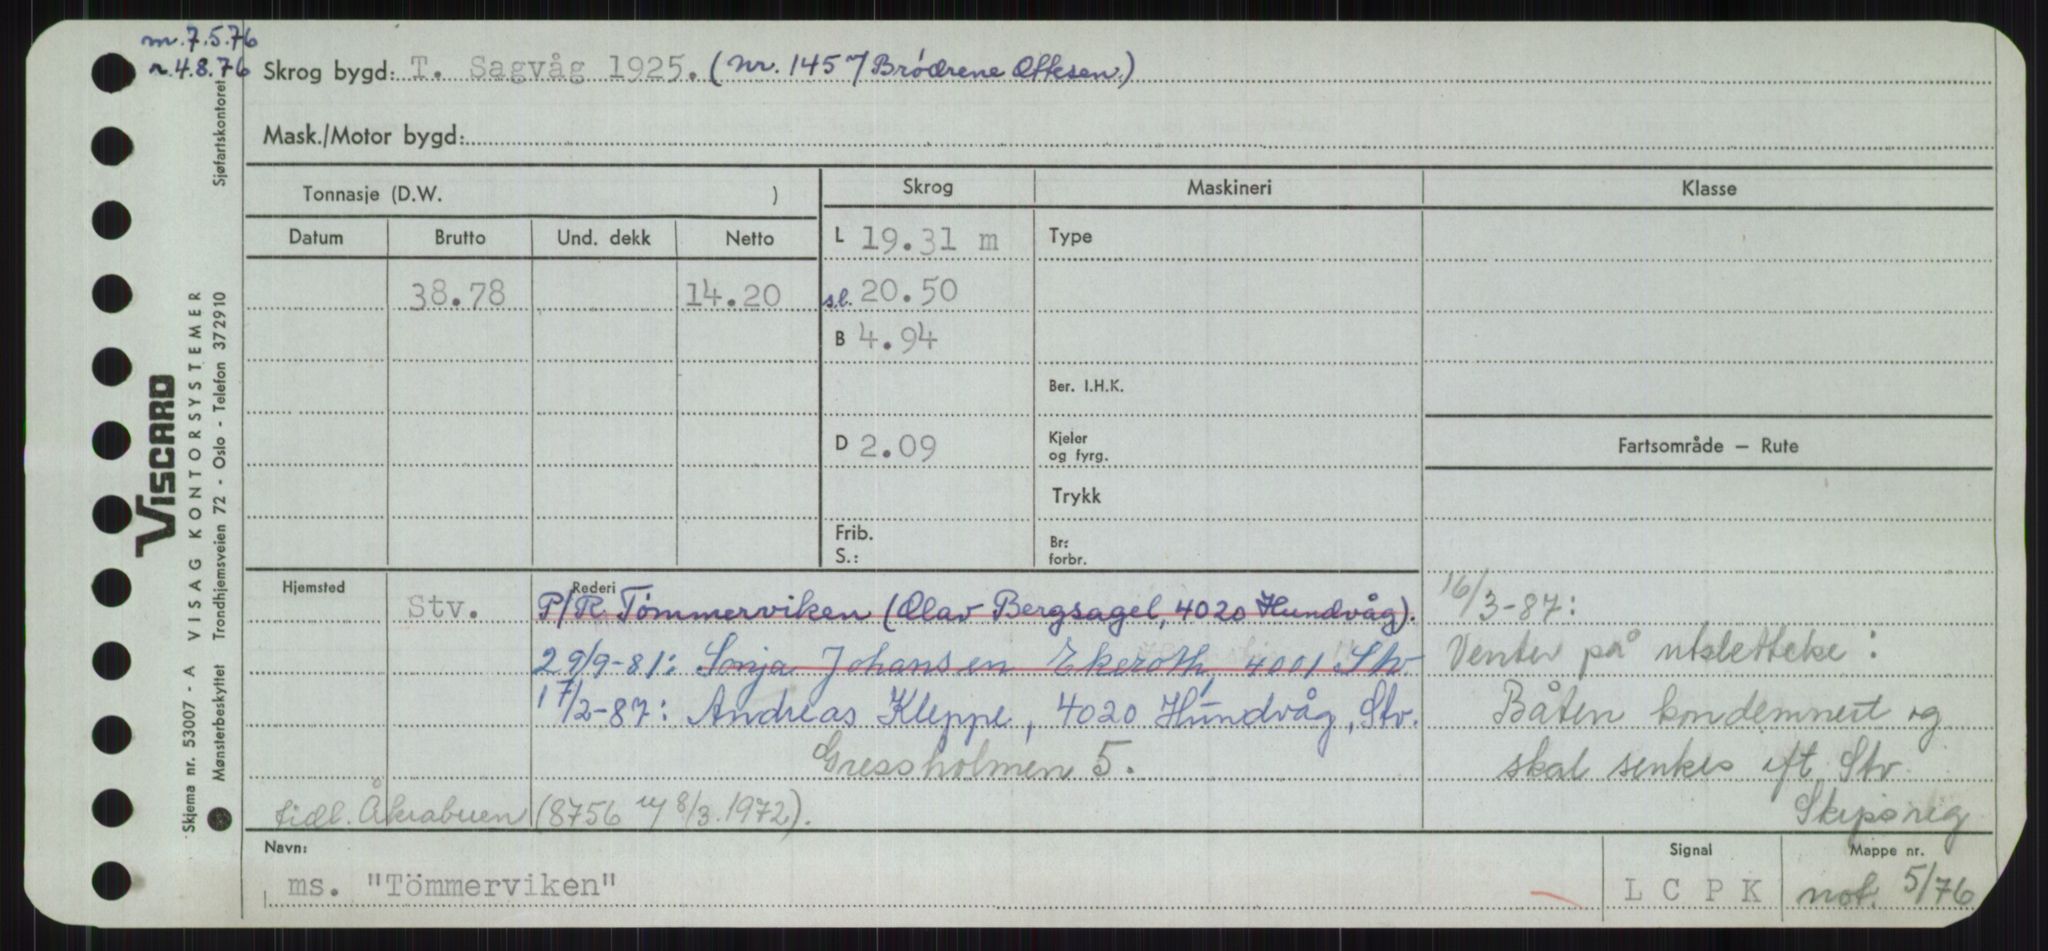 m.7.5.76
n.4.8.76
Skrog bygd: T. Sagvåg 1925. (Nr. 1457 Brødrene Oftesen.)
Mask./Motor bygd:
Tonnasje (D.W. )
Skrog
Maskineri
Klasse
Datum
Brutto
Und. dekk
Netto
L 19.31 m
Type
38.78
14.20
sl. 20.50
B 4.94
Ber. I.H.K.
D 2.09
Kjeler
og fyrg.
Fartsområde – Rute
Trykk
Frib.
S.:
Br:
forbr.
Hjemsted
Rederi
Stv.
P/R Tömmerviken (Olav Bergsagel, 4020 Hundvåg).
29/9-81: Sonja Johansen Ekeroth, 4001 Stv
17/2-87: Andreas Kleppe, 4020 Hundvåg, Stv.
Gressholmen 5.
tidl. Åkrabuen (8756 my 8/3.1972).
16/3-87:
Venter på utslettelse:
Båten kondemnert og
skal senkes ift. Stv.
Skipsreg
Navn:
ms. "Tömmerviken"
Signal
L C P K
Mappe nr.
not. 5/76
Skjema nr. 53007 - A VISAG KONTORSYSTEMER
VISCARD
Mønsterbeskyttet Trondhjemsveien 72 - Oslo - Telefon 372910
Sjøfartskontoret